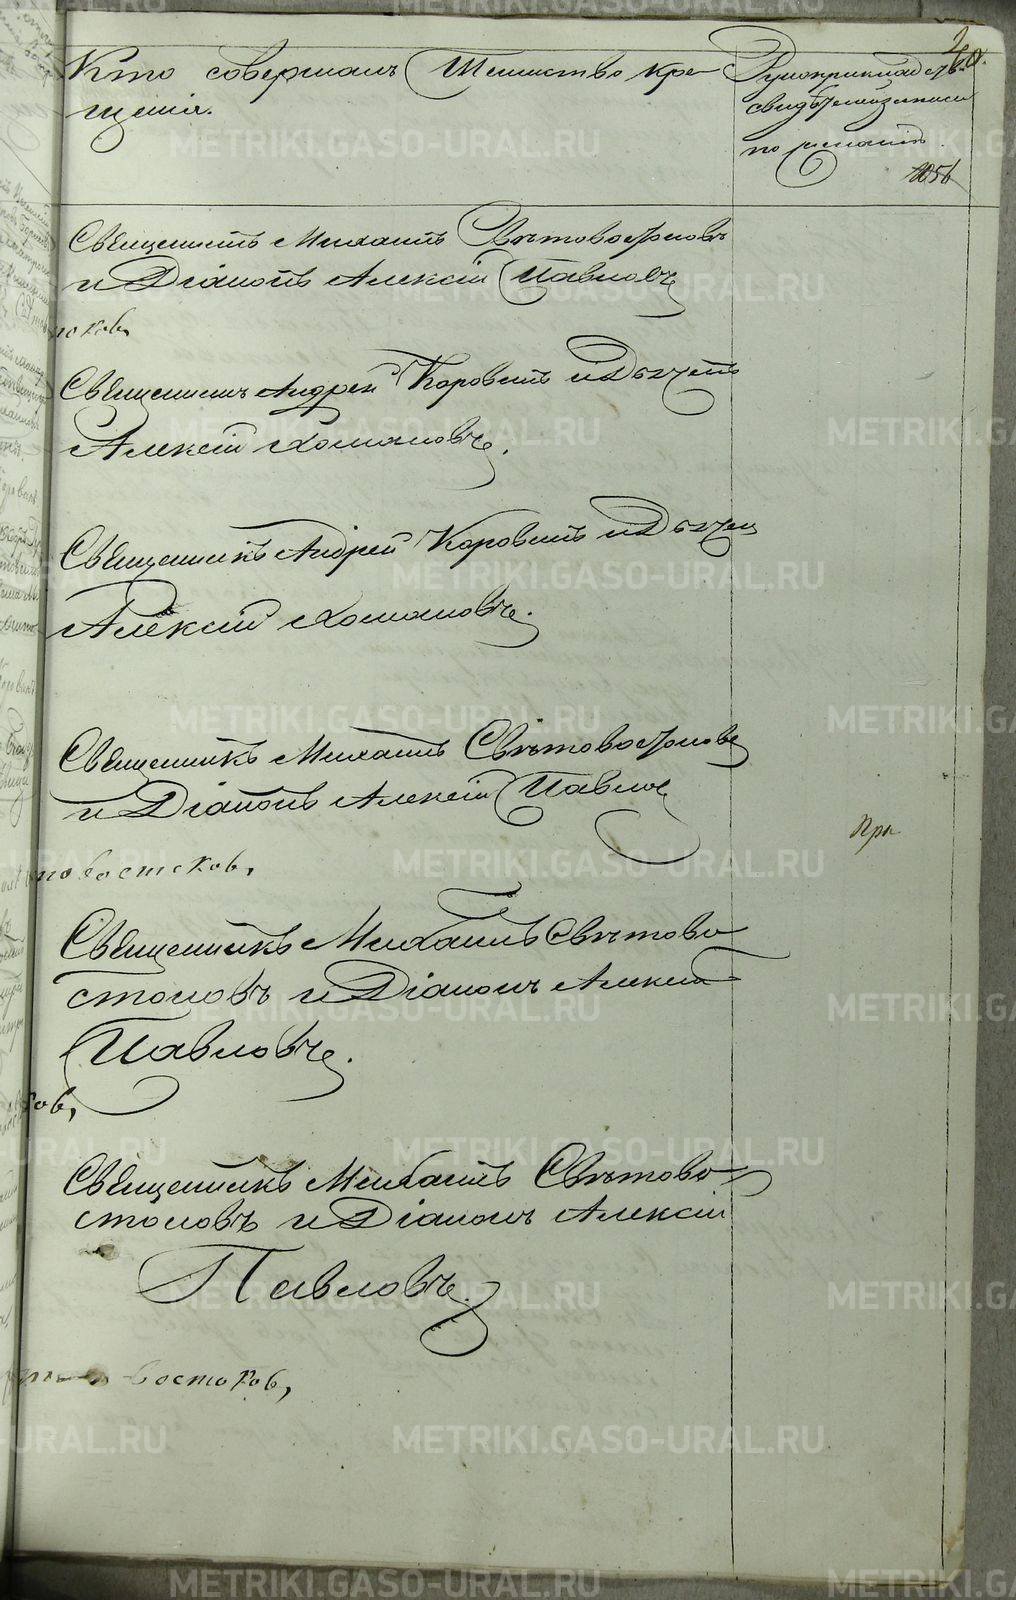 Кто совершалъ Таинство кре-
щенія.
Рукоприкладство
свидѣтелей записи
по желанію
1056
Священникъ Михаилъ Свѣтовостоковъ
и Діаконъ Алексій Павловъ
Священникъ Андрей Коровинъ и Дьячекъ
Алексій Хомановъ.
Священникъ Андрей Коровинъ и Дьячекъ
Алексій Хомановъ.
Священникъ Михаилъ Свѣтовостоковъ
и Діаконъ Алексій Павловъ
При
Священникъ Михаилъ Свѣтово
стоковъ и Діаконъ Алексій
Павловъ.
ов,
Священникъ Михаилъ Свѣтово
стоковъ и Діаконъ Алексій
Павловъ.
востоков,
METRIKI.GASO-URAL.RU